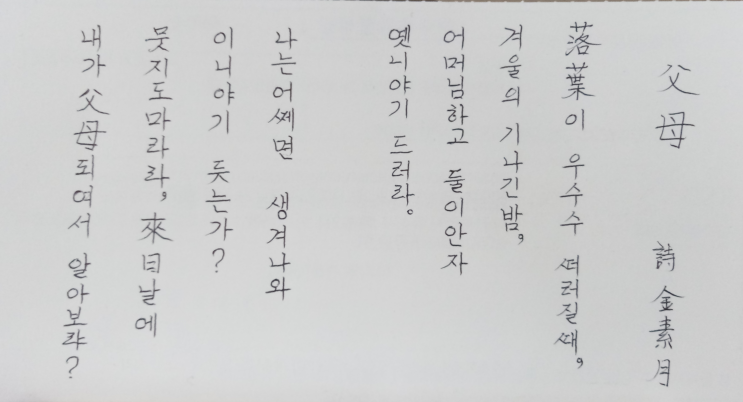 父母 詩 金素月
落葉이 우수수 ᄯᅥ러질ᄯᅢ,
겨울의 기나긴밤,
어머님하고 둘이안자
옛니야기 드러라.
나는어ᄶᅦ면 생겨나와
이니야기 듯는가?
뭇지도마라라, 來日날에
내가父母되여서 알아보랴?